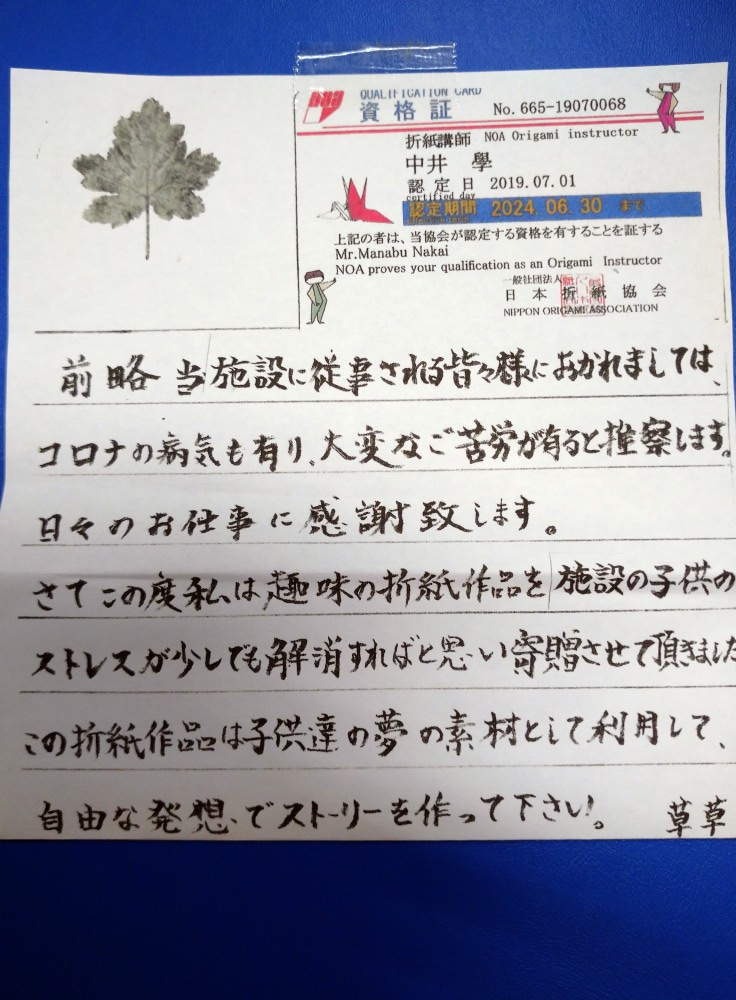 QUALIFICATION CARD
資格証 No. 665-19070068
折紙講師 NOA Origami instructor
中井 學
認定日 2019.07.01
certified day
認定期間 2024.06.30 まで
上記の者は、当協会が認定する資格を有することを証する
Mr.Manabu Nakai
NOA proves your qualification as an Origami Instructor
一般社団法人
日本折紙協会
NIPPON ORIGAMI ASSOCIATION
前略 当施設に従事される皆々様におかれましては、
コロナの病気も有り、大変なご苦労が有ると推察します。
日々のお仕事に感謝致します。
さてこの度私は趣味の折紙作品を施設の子供の
ストレスが少しでも解消すればと思い寄贈させて頂きました
この折紙作品は子供達の夢の素材として利用して、
自由な発想でストーリーを作って下さい。 草草